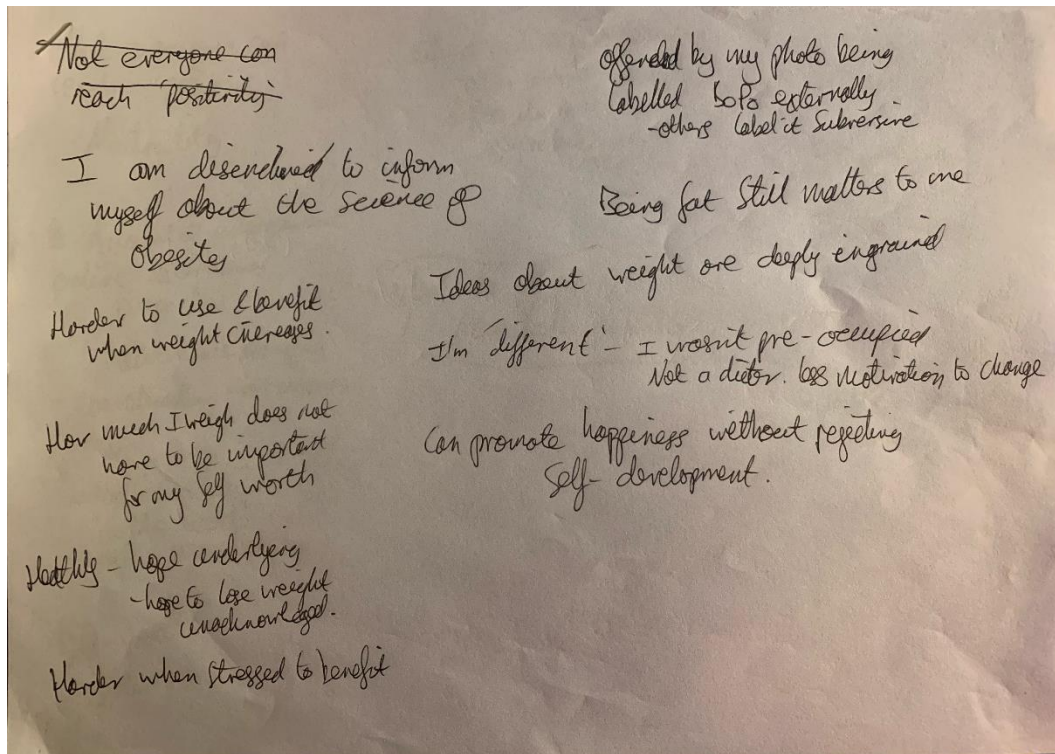 Not everyone can
reach 'positivity
I am disenclined to inform
myself about the science of
Obesity
Harder to use & benefit
when weight increases.
How much I weigh does not
have to be important
for my self worth
Healthy - hope underlying
- hope to lose weight
unacknowledged.
Harder when stressed to benefit
offended by my photo being
labelled BoPo externally
- others label it Subversive
Being fat still matters to me
Ideas about weight are deeply engrained
I'm 'different' - I wasn't pre-occupied
Not a dieter. less motivation to change
Can promote happiness without rejecting
Self-development.